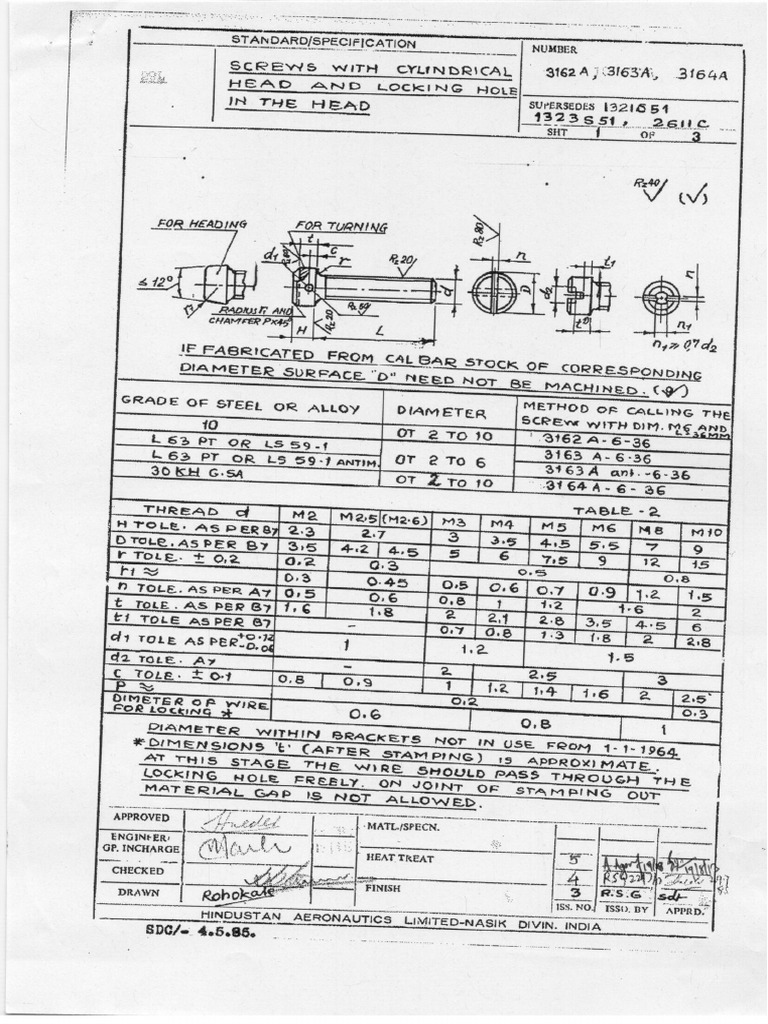 STANDARD/SPECIFICATION
SCREWS WITH CYLINDRICAL
HEAD AND LOCKING HOLE
IN THE HEAD
NUMBER
3162A, 3163A, 3164A
SUPERSEDES 1321S51
1323S51, 2611C
SHT 1 OF 3
Rz40
FOR HEADING
FOR TURNING
≤12°
r1
d1
t
c
r
Rz20
Rz80
n
D
d
d2
t1
n
n1
RADIUS r1 AND
CHAMFER PX45°
Rz20
H
L
n1 ≥ 0,7 d2
IF FABRICATED FROM CAL BAR STOCK OF CORRESPONDING
DIAMETER SURFACE "D" NEED NOT BE MACHINED.
GRADE OF STEEL OR ALLOY DIAMETER METHOD OF CALLING THE SCREW WITH DIM. M6 AND LS 36MM
10 OT 2 TO 10 3162 A-6-36
L 63 PT OR LS 59-1 OT 2 TO 6 3163 A-6-36
L 63 PT OR LS 59-1 ANTIM. 3163A ant.-6-36
30 KH G.SA OT 2 TO 10 3164 A-6-36
TABLE-2
THREAD d M2 M2.5 (M2.6) M3 M4 M5 M6 M8 M10
H TOLE. AS PER B7 2.3 2.7 3 3.5 4.5 5.5 7 9
D TOLE. AS PER B7 3.5 4.2 4.5 5 6 7.5 9 12 15
r TOLE. ± 0.2 0.2 0.3 0.5 0.8
r1 ≈ 0.3 0.45 0.5 0.6 0.7 0.9 1.2 1.5
n TOLE. AS PER A7 0.5 0.6 0.8 1 1.2 1.6 2
t TOLE. AS PER B7 1.6 1.8 2 2.1 2.8 3.5 4.5 6
t1 TOLE AS PER B7 – 0.7 0.8 1.3 1.8 2 2.8
d1 TOLE AS PER +0.12 -0.06 1 1.2 1.5
d2 TOLE. A7 – 2 2.5 3
C TOLE. ± 0.1 0.8 0.9 1 1.2 1.4 1.6 2 2.5
P ≈ 0.2 0.3
DIMETER OF WIRE FOR LOCKING * 0.6 0.8 1
DIAMETER WITHIN BRACKETS NOT IN USE FROM 1-1-1964
*DIMENSIONS 't' (AFTER STAMPING) IS APPROXIMATE.
AT THIS STAGE THE WIRE SHOULD PASS THROUGH THE
LOCKING HOLE FREELY. ON JOINT OF STAMPING OUT
MATERIAL GAP IS NOT ALLOWED.
APPROVED
ENGINEER/
GP. INCHARGE
CHECKED
DRAWN Rohokale
MATL./SPECN.
HEAT TREAT
FINISH
5
4
3 R.S.G sdt
ISS. NO. ISSO. BY APPRD.
HINDUSTAN AERONAUTICS LIMITED-NASIK DIVIN. INDIA
SDG/- 4.5.85.